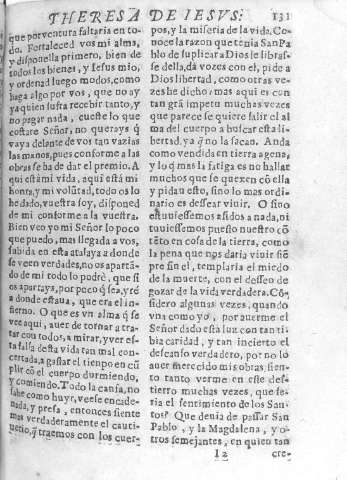 THERESA DE IESVS: 131
que por ventura faltaria en to-
do. Fortaleced vos mi alma,
y disponella primero, bien de
todos los bienes, y Iesus mio,
y ordenad luego modos, como
haga algo por vos, que no ay
ya quien sufra recebir tanto, y
no pagar nada, cueste lo que
costare Señor, no querays q̃
vaya delante de vos tan vazias
las manos, pues conforme a las
obras se ha de dar el premio. A
qui està mi vida, aqui està mi
honra, y mi volũtad, todo os lo
he dado, vuestra soy, disponed
de mi conforme a la vuestra.
Bien veo yo mi Señor lo poco
que puedo, mas llegada a vos,
subida en esta atalaya a donde
se veen verdades, no os apartã-
do de mi todo lo podrè, que si
os apartays, por poco q̃ sea, yrè
a donde estaua, que era el in-
fierno. O que es vn alma q̃ se
vee aqui, auer de tornar a tra-
tar con todos, a mirar, y ver es-
ta falsa desta vida tan mal con-
certada, a gastar el tiempo en cũ
plir cõ el cuerpo durmiendo,
y comiendo. Todo la cansa, no
sabe como huyr, veese encade-
nada, y presa, entonces siente
mas verdaderamente el cauti-
uerio, q̃ traemos con los cuer-
pos, y la miseria de la vida. Co-
noce la razon que tenia San Pa
blo de suplicar a Dios le libras-
se della, dà vozes con el, pide a
Dios libertad, como otras ve-
zes he dicho, mas aqui es con
tan grã impetu muchas vezes
que parece se quiere salir el al
ma del cuerpo a buscar esta li-
bertad, ya q̃ no la sacan. Anda
como vendida en tierra agena,
y lo q̃ mas la fatiga es no hallar
muchos que se quexen cõ ella
y pidan esto, sino lo mas ordi-
nario es dessear viuir. O sino
estuuiessemos asidos a nada, ni
tuuiessemos puesto nuestro cõ
tẽto en cosa de la tierra, como
la pena que nos daria viuir siẽ
pre sin el, templaria el miedo
de la muerte, con el desseo de
gozar de la vida verdadera. Cõ
sidero algunas vezes, quando
vna como yo, por auerme el
Señor dado esta luz con tan ti-
bia caridad, y tan incierto el
descanso verdadero, por no lo
auer merecido mis obras, sien-
to tanto verme en este des-
tierro muchas vezes, que se-
ria el sentimiento de los San-
tos? Que deuia de passar San
Pablo, y la Magdalena, y o-
tros semejantes, en quien tan
I 2 cre-